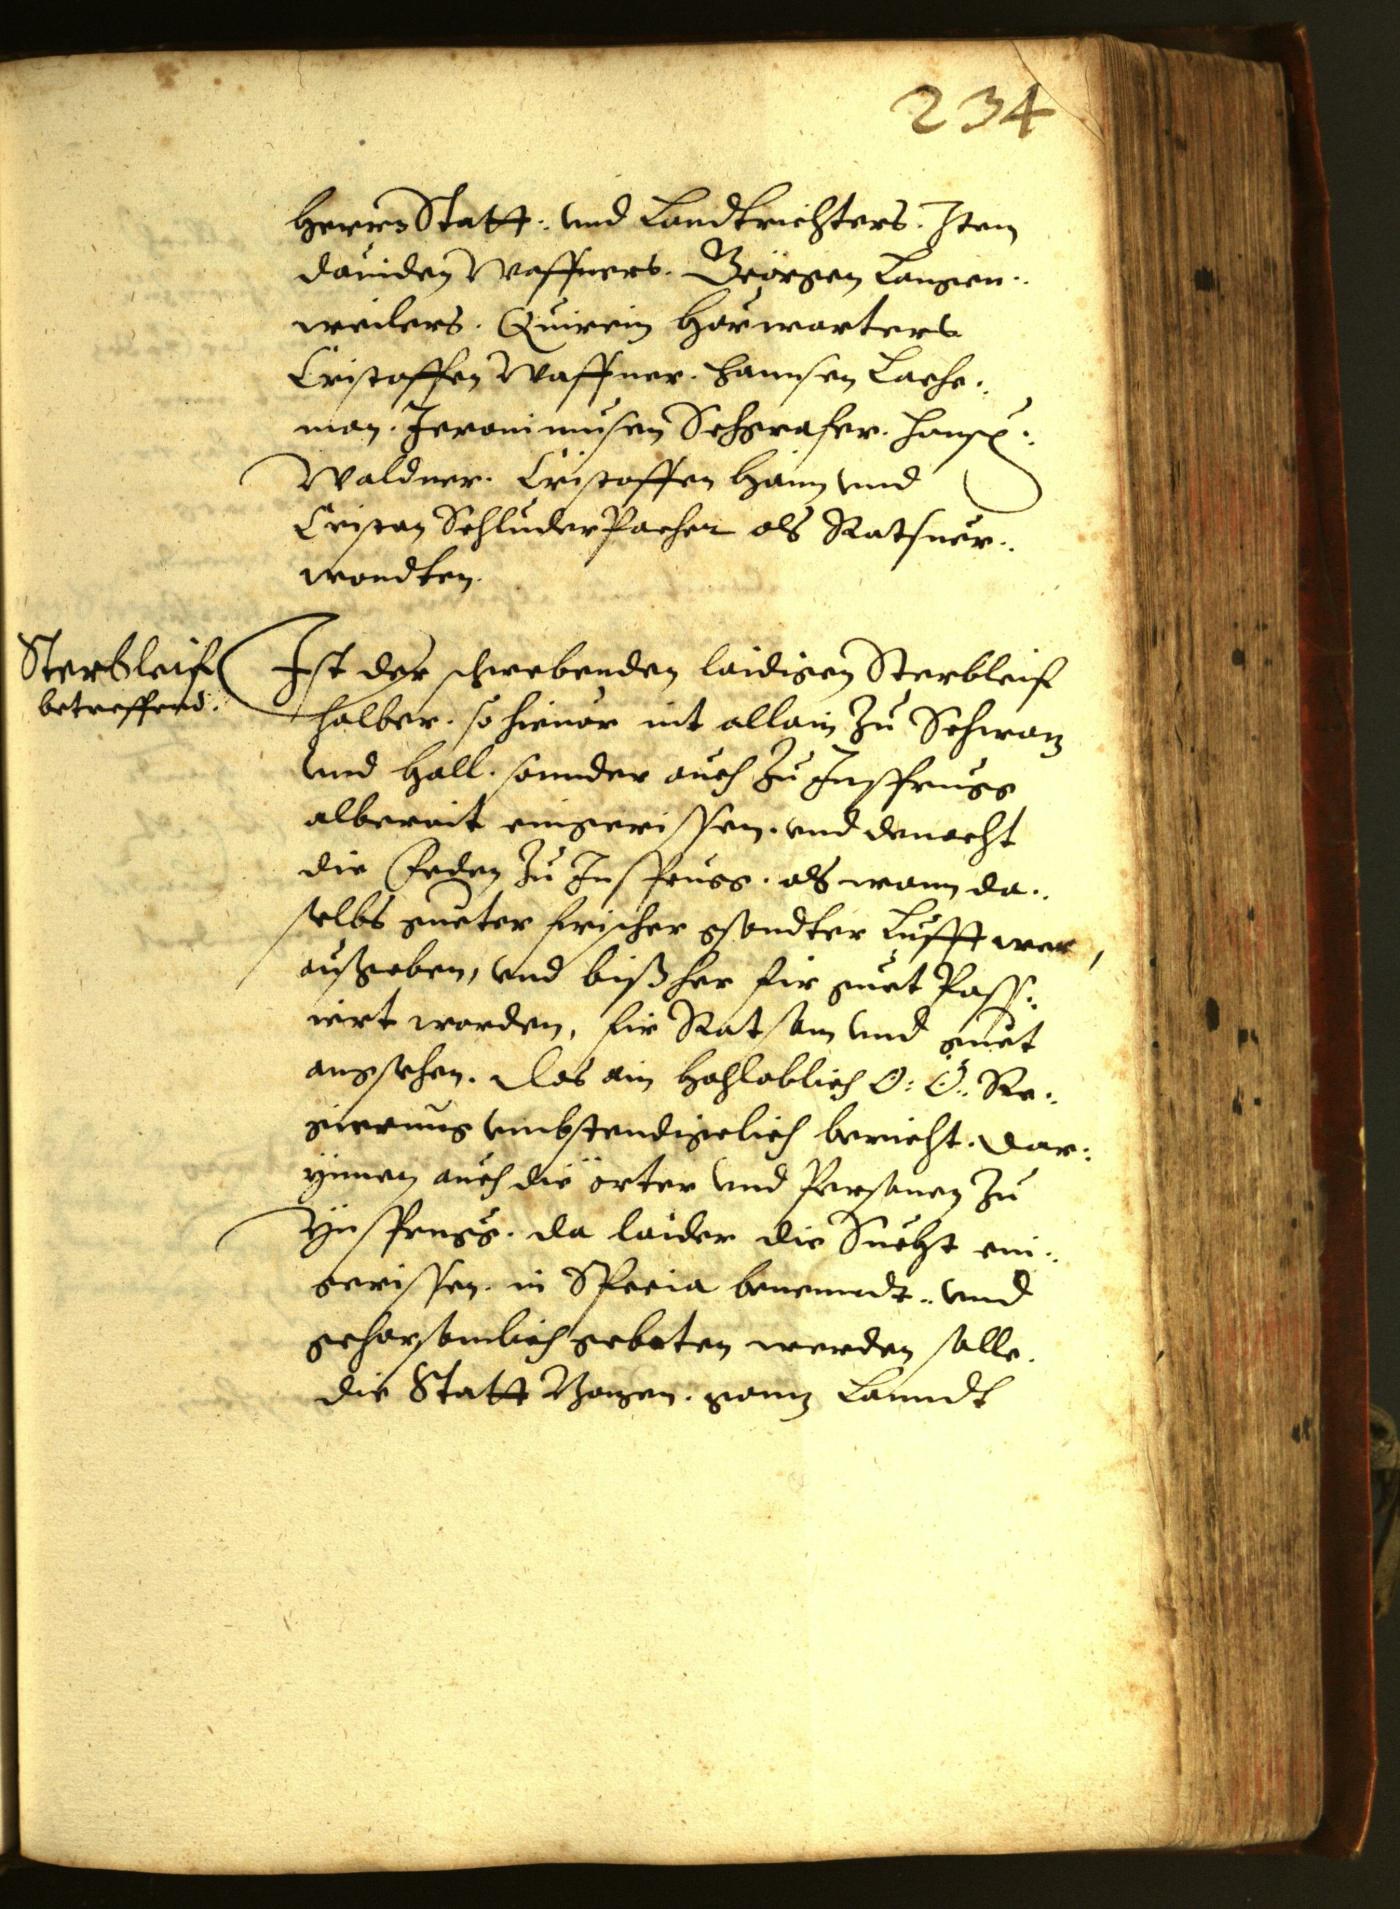 234
Herrn Statt: vnd Landtrichters. Item
Dauiden Waffners. Geörgen Langen:
weilers. Quirein Hörwarters
Cristoffen Waffner. Hannsen Lache:
man. Jeronimusen Schgrafer. Hanß
Waldner. Cristoffen Häm vnd
Cristan Schluderpacher als Ratsuer:
wondten.
Sterbleif
betreffend.
Ist der schwebenden laidigen Sterbleif
halber. so hieuor nit allain zu Schwaz
vnd Hall. sonnder auch zu Insprugg
alberait eingerissen. vnd dem nacht
die Feden zu Insprugg. als wann da:
selbs gueter frischer gsondter Lufft wer,
aufgeben, vnd bißher für guet Pass:
iert worden, für Ratsam vnd guet
angsehen. Das ain Hohloblich O: Ö: Re:
gierung vmbstendigelich bericht. Dar:
ynnen auch die örter vnd Personen zu
Ynsprugg. da laider die Sucht ein:
gerissen. in Specia benenndt. vnd
gehorsomlich gebeten werden solle.
die Statt Bozen. ganz Lanndt